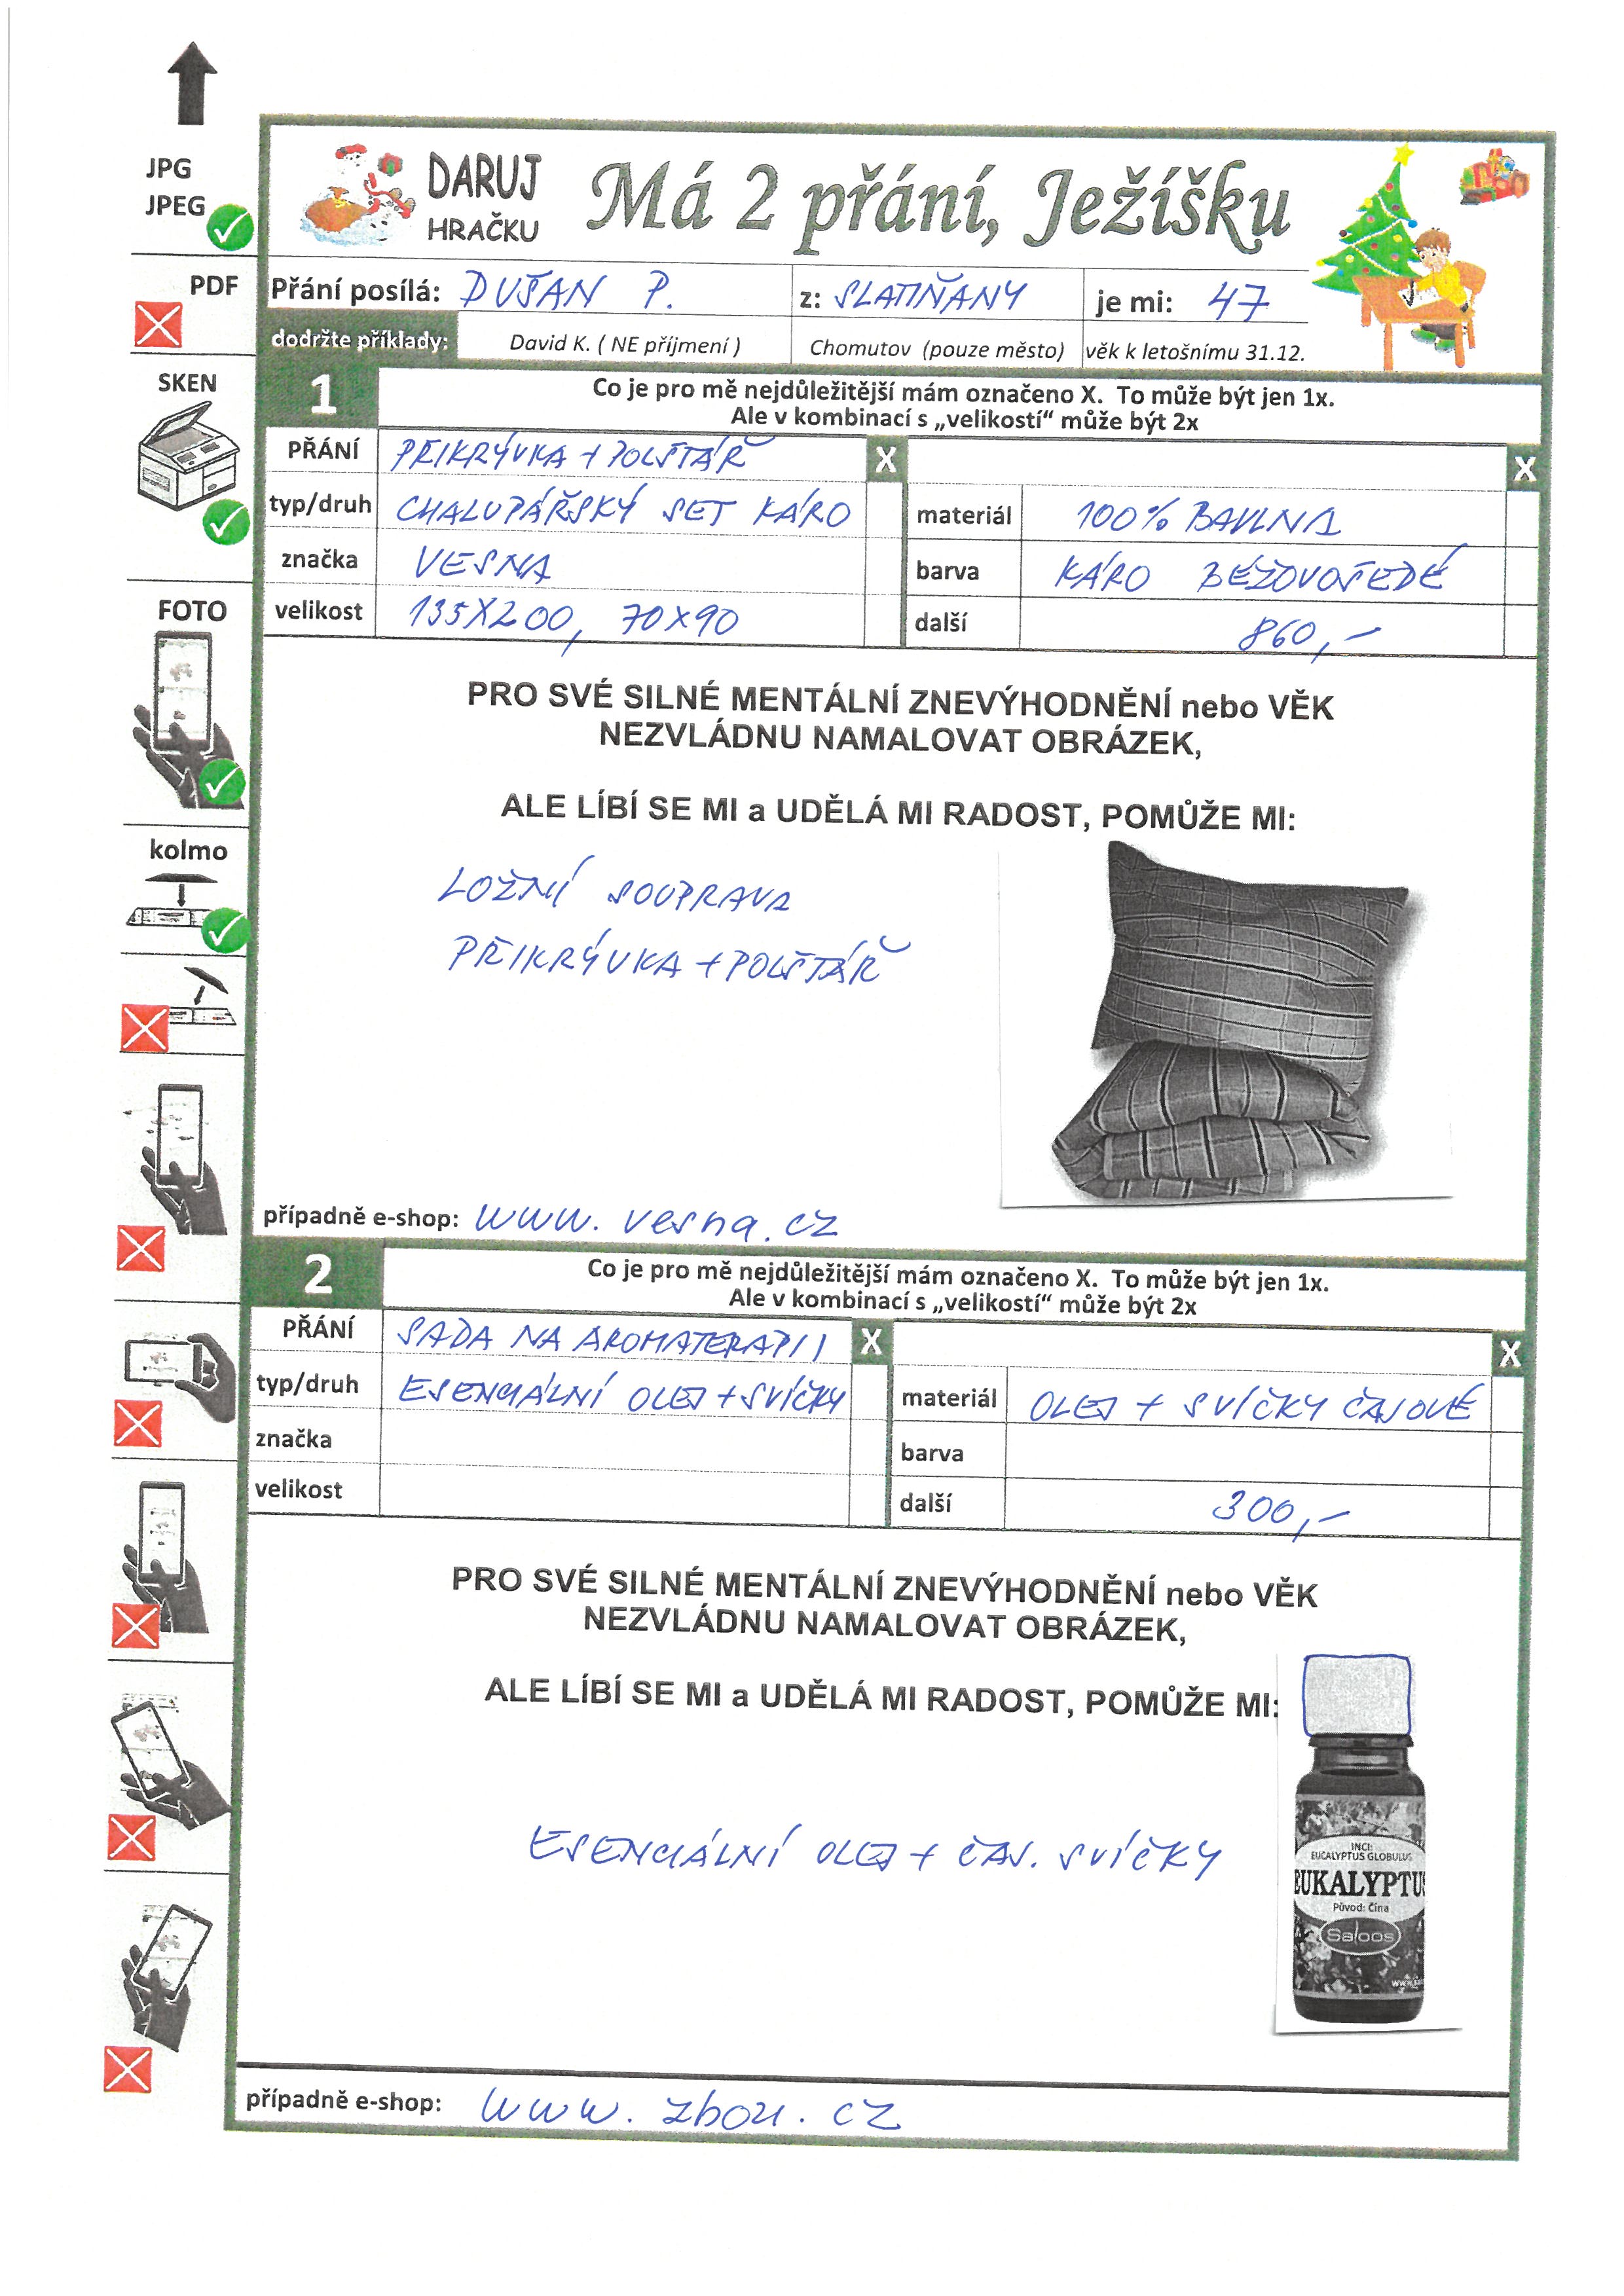 JPG
JPEG
PDF
SKEN
FOTO
kolmo
DARUJ
HRAČKU
Má 2 přání, Ježíšku
Přání posílá: DUŠAN P. z: SLATIŇANY je mi: 47
dodržte příklady: David K. ( NE příjmení ) Chomutov (pouze město) věk k letošnímu 31.12.
1
Co je pro mě nejdůležitější mám označeno X. To může být jen 1x.
Ale v kombinací s „velikostí“ může být 2x
PŘÁNÍ PŘIKRÝVKA + POLŠTÁŘ X X
typ/druh CHALUPÁŘSKÝ SET KÁRO materiál 100% BAVLNA
značka VESNA barva KÁRO BÉŽOVOŠEDÉ
velikost 135X200, 70X90 další 860,-
PRO SVÉ SILNÉ MENTÁLNÍ ZNEVÝHODNĚNÍ nebo VĚK
NEZVLÁDNU NAMALOVAT OBRÁZEK,
ALE LÍBÍ SE MI a UDĚLÁ MI RADOST, POMŮŽE MI:
LOŽNÍ SOUPRAVA
PŘIKRÝVKA + POLŠTÁŘ
případně e-shop: www.vesna.cz
2
Co je pro mě nejdůležitější mám označeno X. To může být jen 1x.
Ale v kombinací s „velikostí“ může být 2x
PŘÁNÍ SADA NA AROMATERAPII X X
typ/druh ESENCIÁLNÍ OLEJ + SVÍČKY materiál OLEJ + SVÍČKY ČAJOVÉ
značka barva
velikost další 300,-
PRO SVÉ SILNÉ MENTÁLNÍ ZNEVÝHODNĚNÍ nebo VĚK
NEZVLÁDNU NAMALOVAT OBRÁZEK,
ALE LÍBÍ SE MI a UDĚLÁ MI RADOST, POMŮŽE MI:
ESENCIÁLNÍ OLEJ + ČAJ. SVÍČKY
INCI:
EUCALYPTUS GLOBULUS
EUKALYPTUS
Původ: Čína
Saloos
případně e-shop: www.zbozi.cz